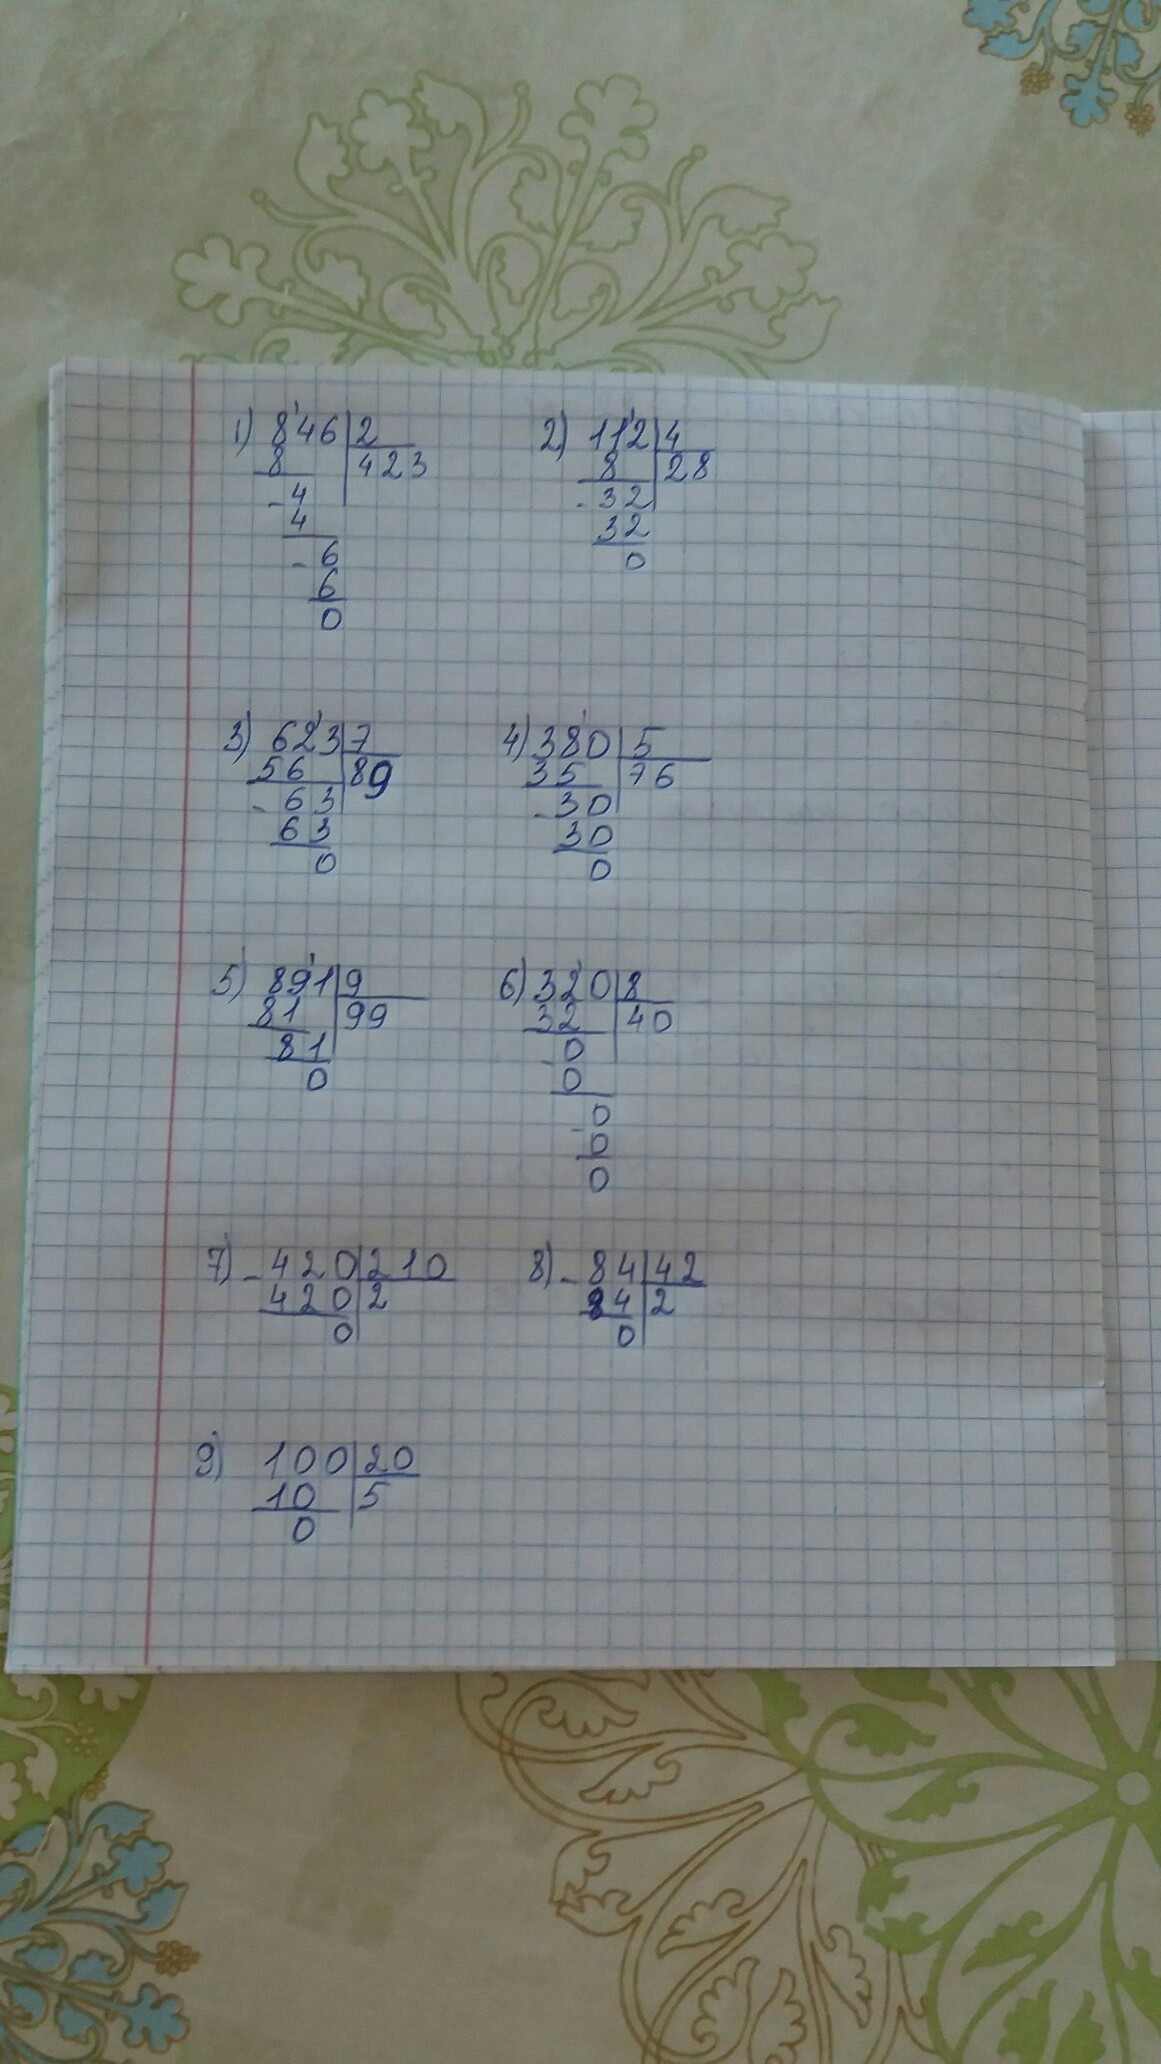 1) 8'46 | 2    2) 11'2 | 4
8 | 423    8 | 28
-4    -32
4    32
-6    0
6
0
3) 62'3 | 7    4) 38'0 | 5
56 | 89    35 | 76
-63    -30
63    30
0    0
5) 89'1 | 9    6) 32'0 | 8
81 | 99    32 | 40
81    -0
0    0
-0
0
0
7) -420 | 210    8) -84 | 42
420 | 2    84 | 2
0    0
9) 100 | 20
10 | 5
0